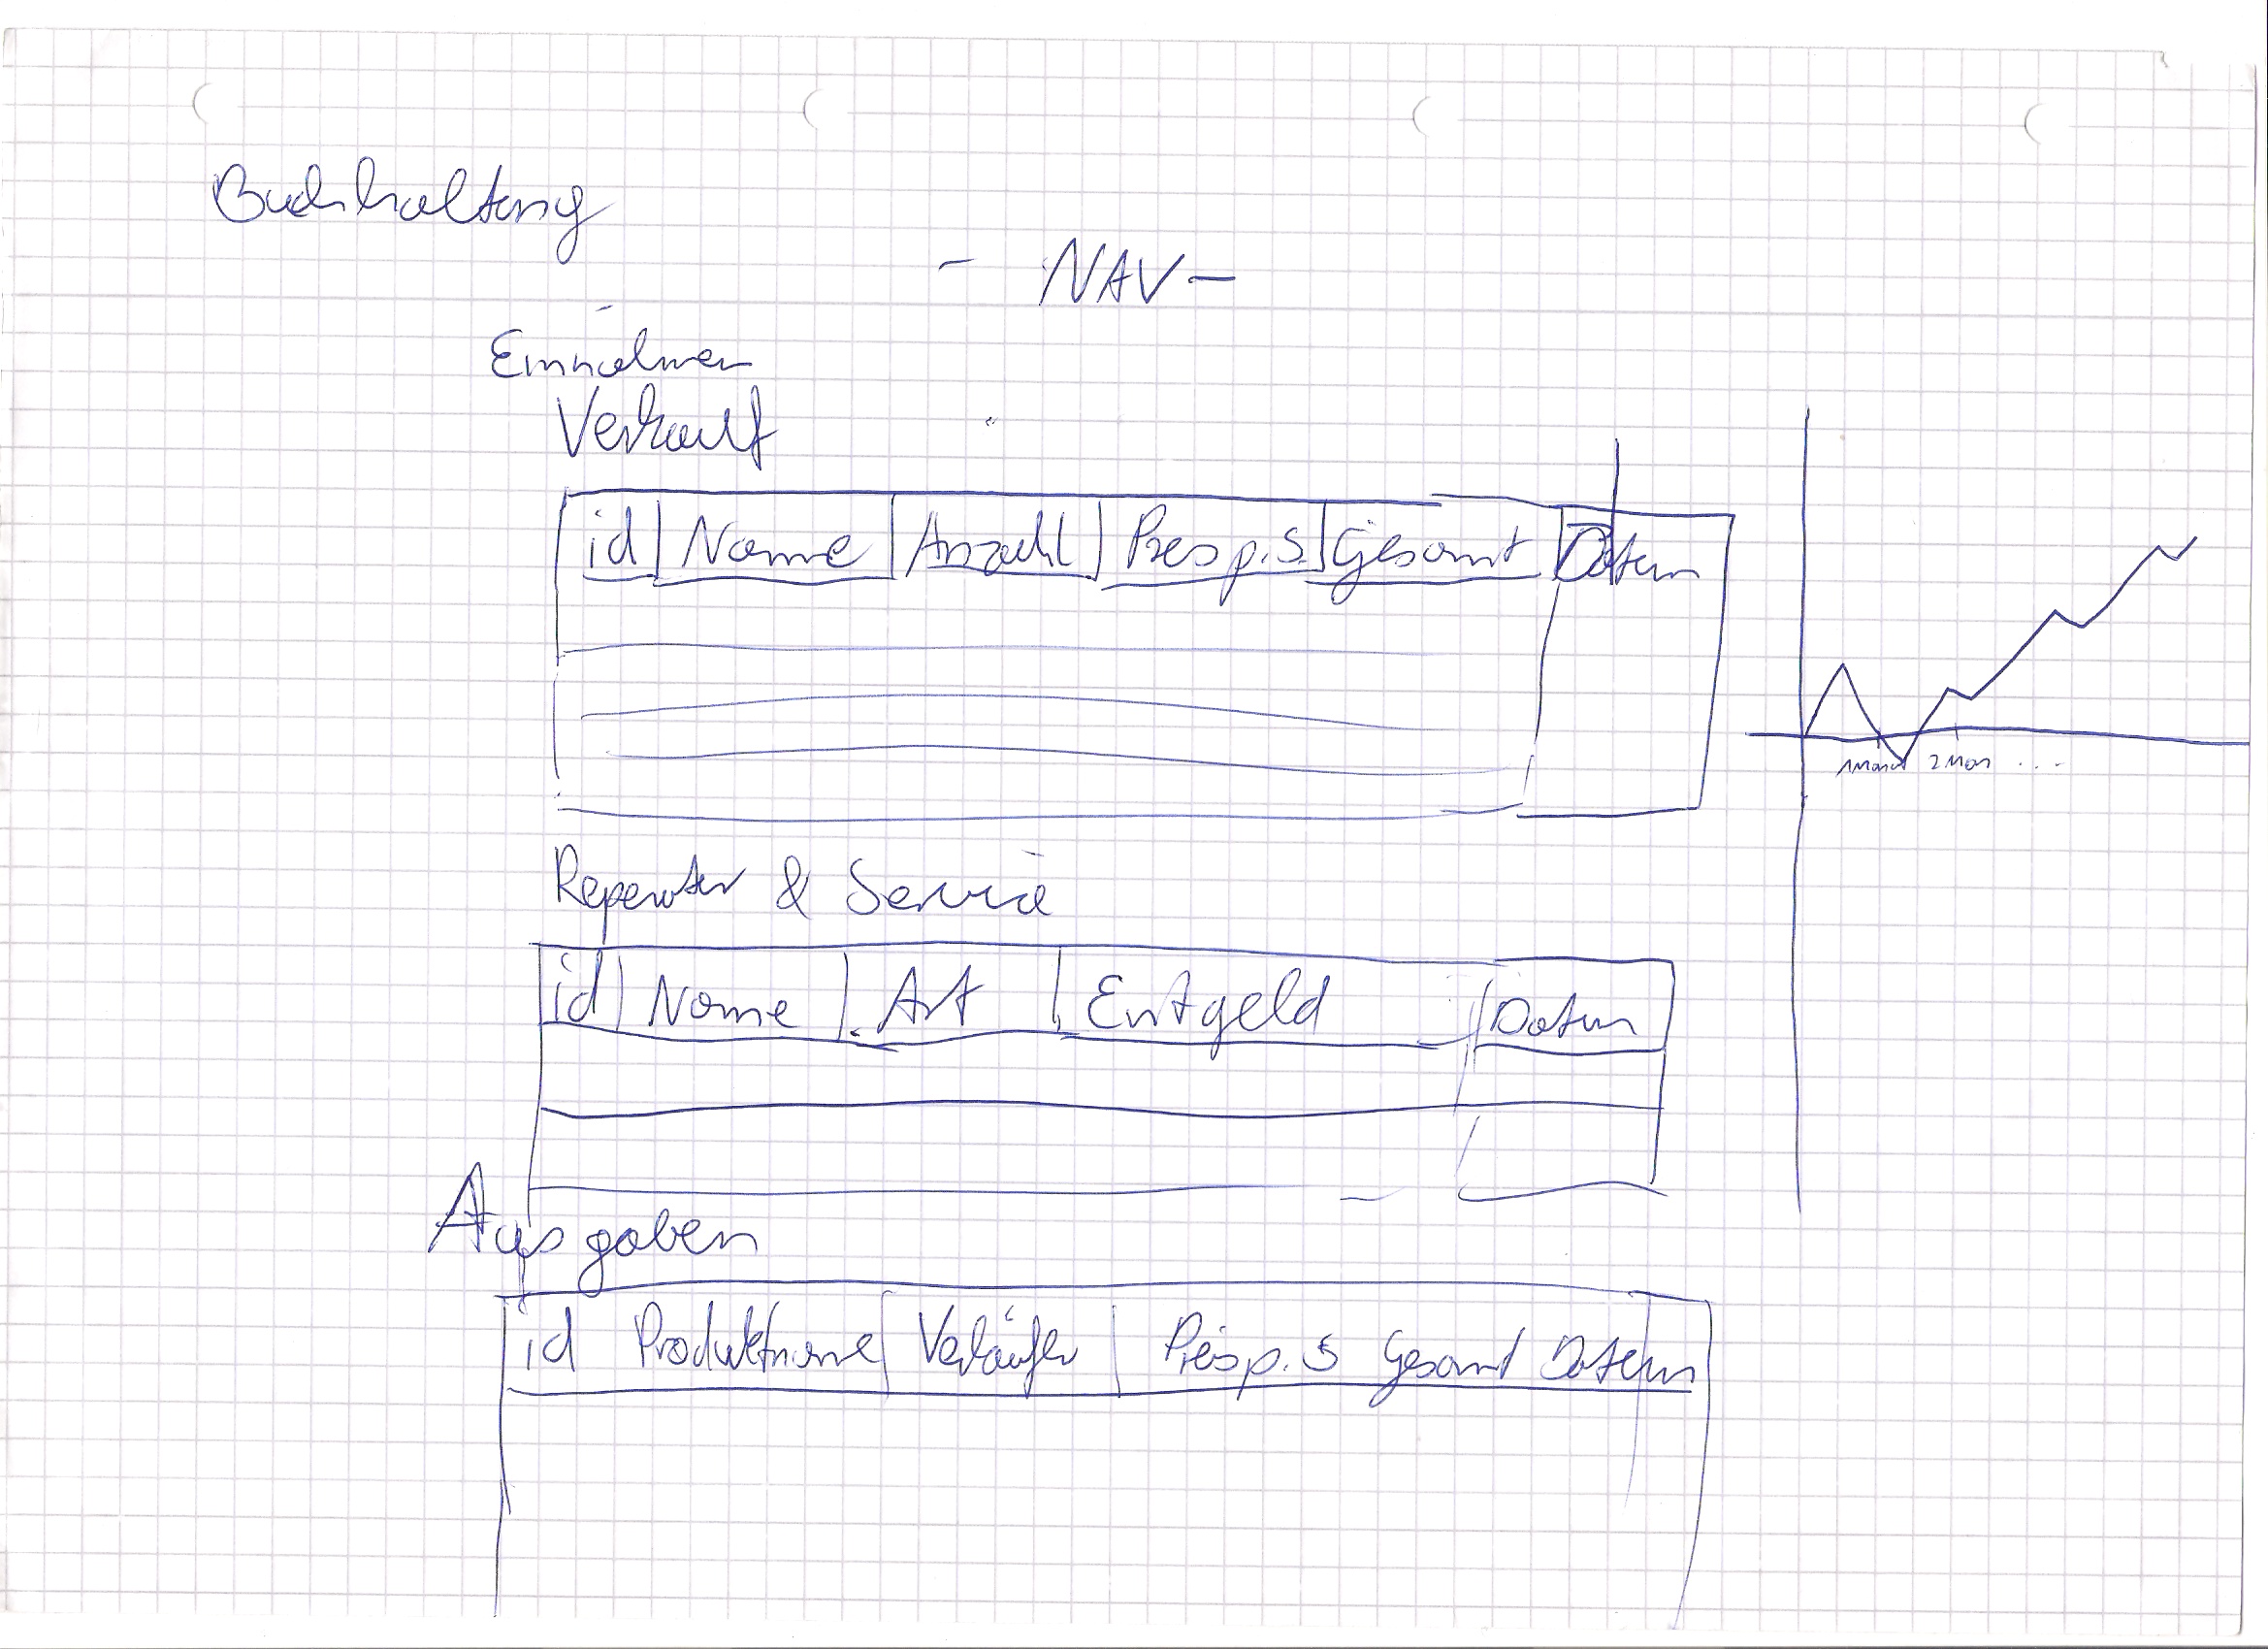 Buchhaltung
- NAV -
Einnahmen
Verkauf
id Name Anzahl Preis p. S. Gesamt Datum
1 Monat 2 Mon ...
Reperatur & Service
id Name Art Entgeld Datum
Ausgaben
id Produktname Verkäufer Preis p. S Gesamt Datum